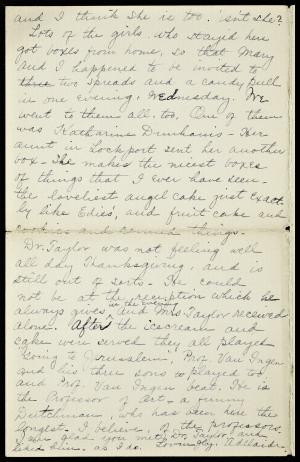 and I think she is too. isn't she?
Lots of the girls who stayed here
got boxes from home, so that Mary
and I happened to be invited to
three two spreads and a candy pull
in one evening, Wednesday. We
went to them all, too. One of them
was Katharine Dunham's - Her
aunt in Lockport sent her another
box. She makes the nicest boxes
of things that I ever have seen -
the loveliest angel cake just exact-
ly like Edies', and fruit cake and
cookies and canned things.
Dr. Taylor was not feeling well
all day Thanksgiving, and is
still out of sorts. He could
not be at the reception which he
always gives, in the evening and Mrs Taylor received
alone. After the icecream and
cake were served they all played
"Going to Jerusalem", Prof. Van Ingen
and his three sons so played too
and Prof. Van Ingen beat. He is
the Professor of Art - a funny
Dutchman, who has been here the
longest, I believe, of the professors.
I am glad you met Dr. Taylor and
liked him as I do. Lovingly, Adelaide.